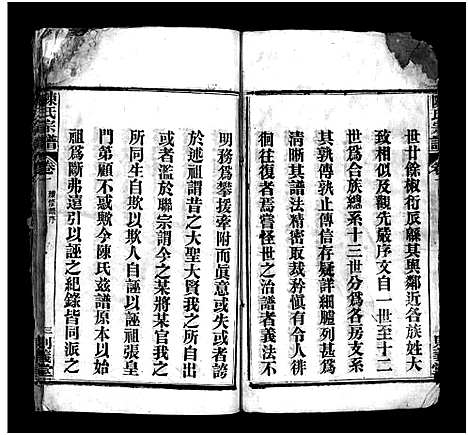 世廿餘椒衍瓜緜其與鄰近各族姓大
致相似及觀先嚴序文自一世至十二
世爲合族總系十三世分爲各房支系
其孰傳孰信存疑詳細臚列甚爲
清晰其譜法精密取裁矜愼有令人徘
徊往復者焉嘗怪世之治譜者義法不
明務爲攀援牽附而眞意或失或者誇
於述祖謂昔之大聖大賢我之所自出
或者濫於聯宗謂今之某將某官我之
所同生自欺以欺人自誣以誣祖張皇
門第顧不恧歟今陳氏兹譜原本以始
祖爲斷弗遠引以誣之紀錄皆同派之
陳氏宗譜 卷一
三 則義堂
陳氏宗譜 卷一
則義堂